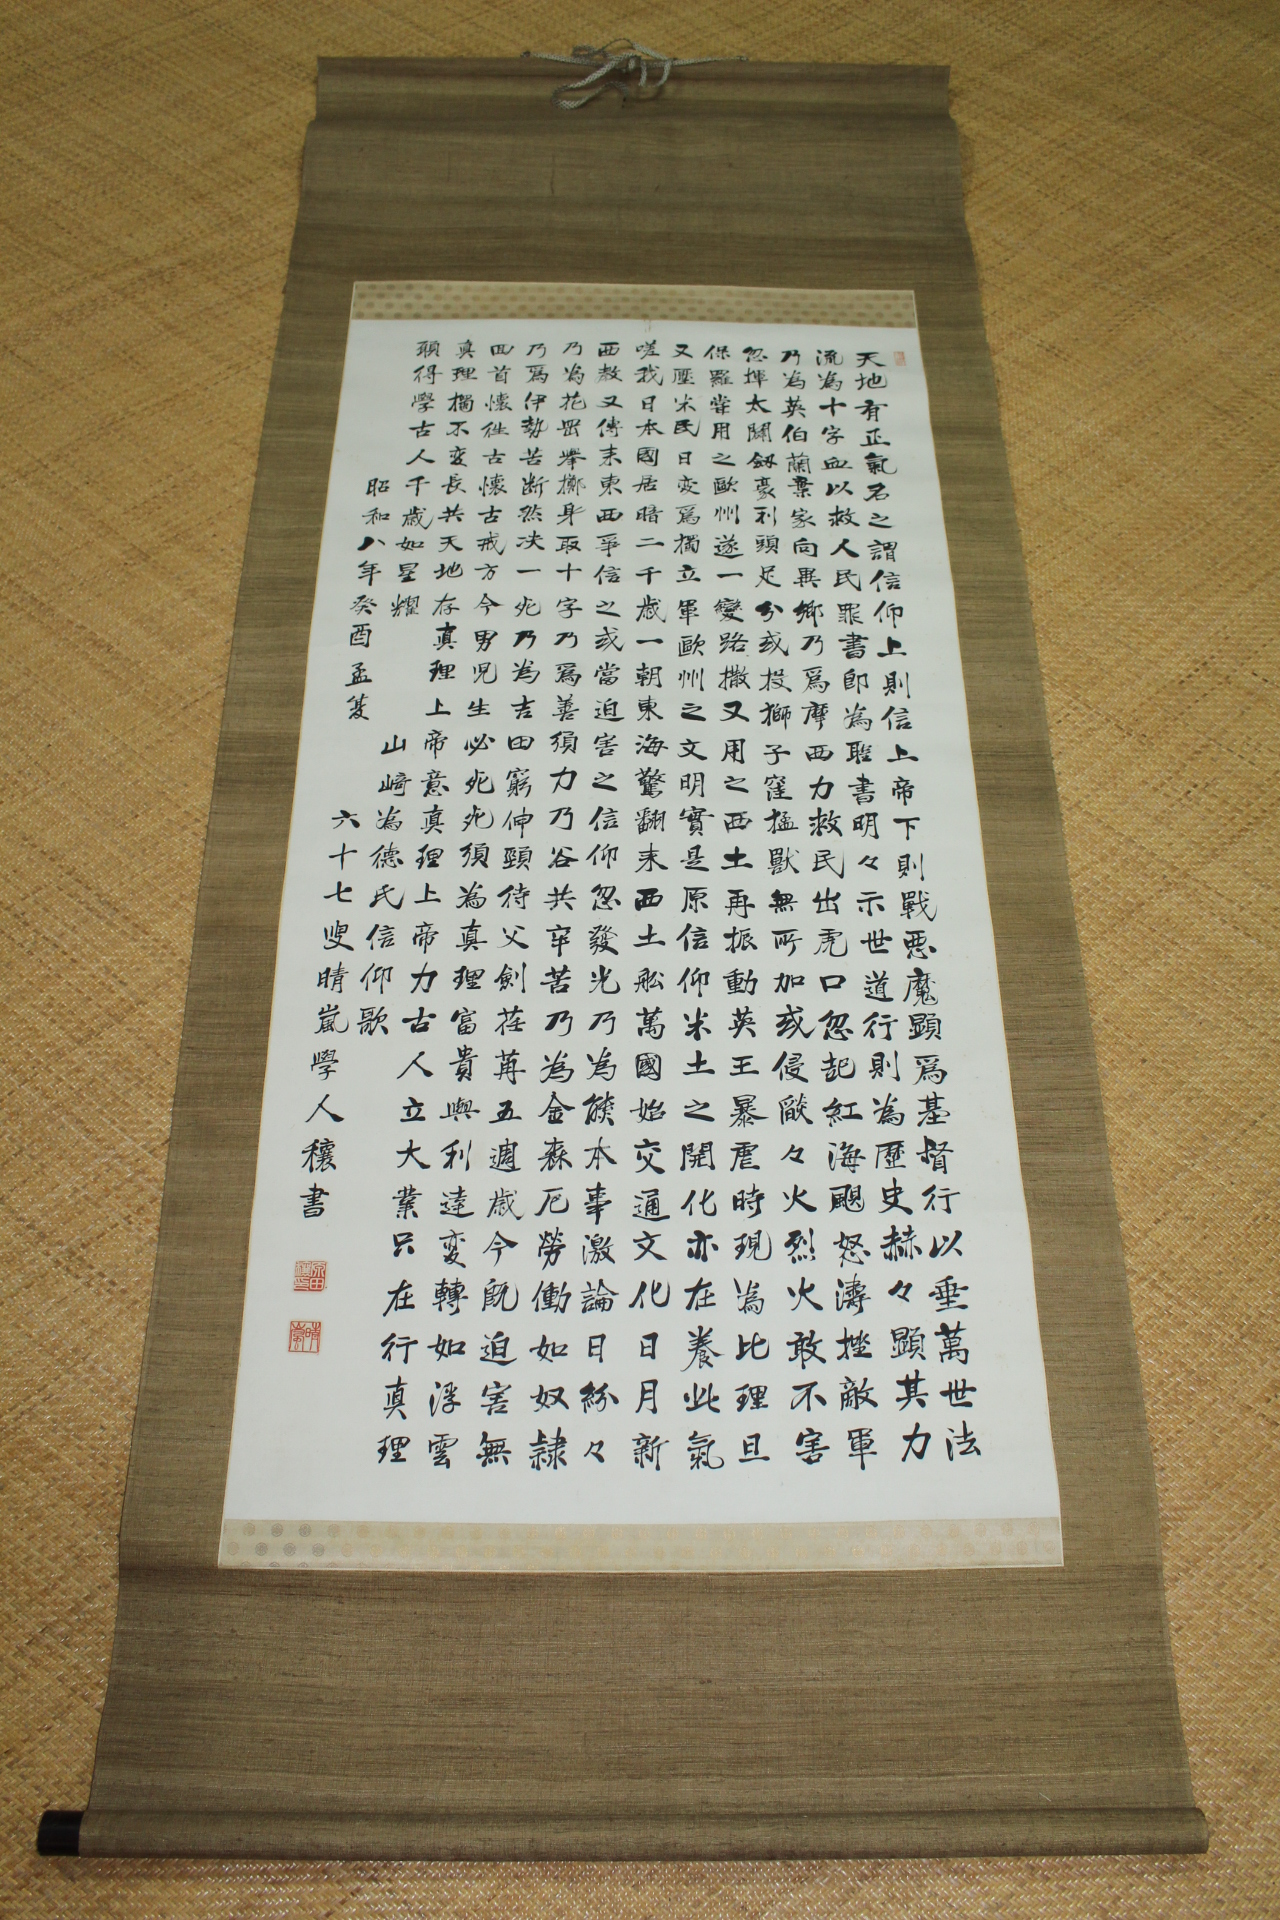 天地有正氣名之謂信仰上則信上帝下則戰悪魔顕爲基督行以垂萬世法
流為十字血以救人民罪書即為聖書明々示世道行則為歴史赫々顕其力
乃為英伯蘭棄家向異郷乃爲摩西力救民出虎口忽起紅海颶怒濤挫敵軍
忽揮太闢劔豪利頭足分或投獅子窪猛獸無所加或侵燄々火烈火敢不害
保羅嘗用之歐州遂一變路撒又用之西土再振動英王暴虐時現為比理旦
又壓米民日変爲獨立軍歐州之文明實是原信仰米土之開化亦在養此氣
嗟我日本國居暗二千歳一朝東海驚翻来西土舩萬國始交通文化日月新
西教又傳来東西爭信之或當迫害之信仰忽發光乃為熊本事激論日紛々
乃為花岡擧擲身取十字乃爲善須力乃谷共辛苦乃為金森厄勞働如奴隷
乃爲伊勢苦断然决一死乃為吉田窮伸頸待父劍荏苒五週歳今既迫害無
回首懷往古懷古戒方今男児生必死死須為真理富貴與利達変轉如浮雲
真理獨不変長共天地存真理上帝意真理上帝力古人立大業只在行真理
願得學古人千歳如星耀 山崎為德氏信仰歌
昭和八年癸酉孟夏 六十七叟晴嵐學人穰書